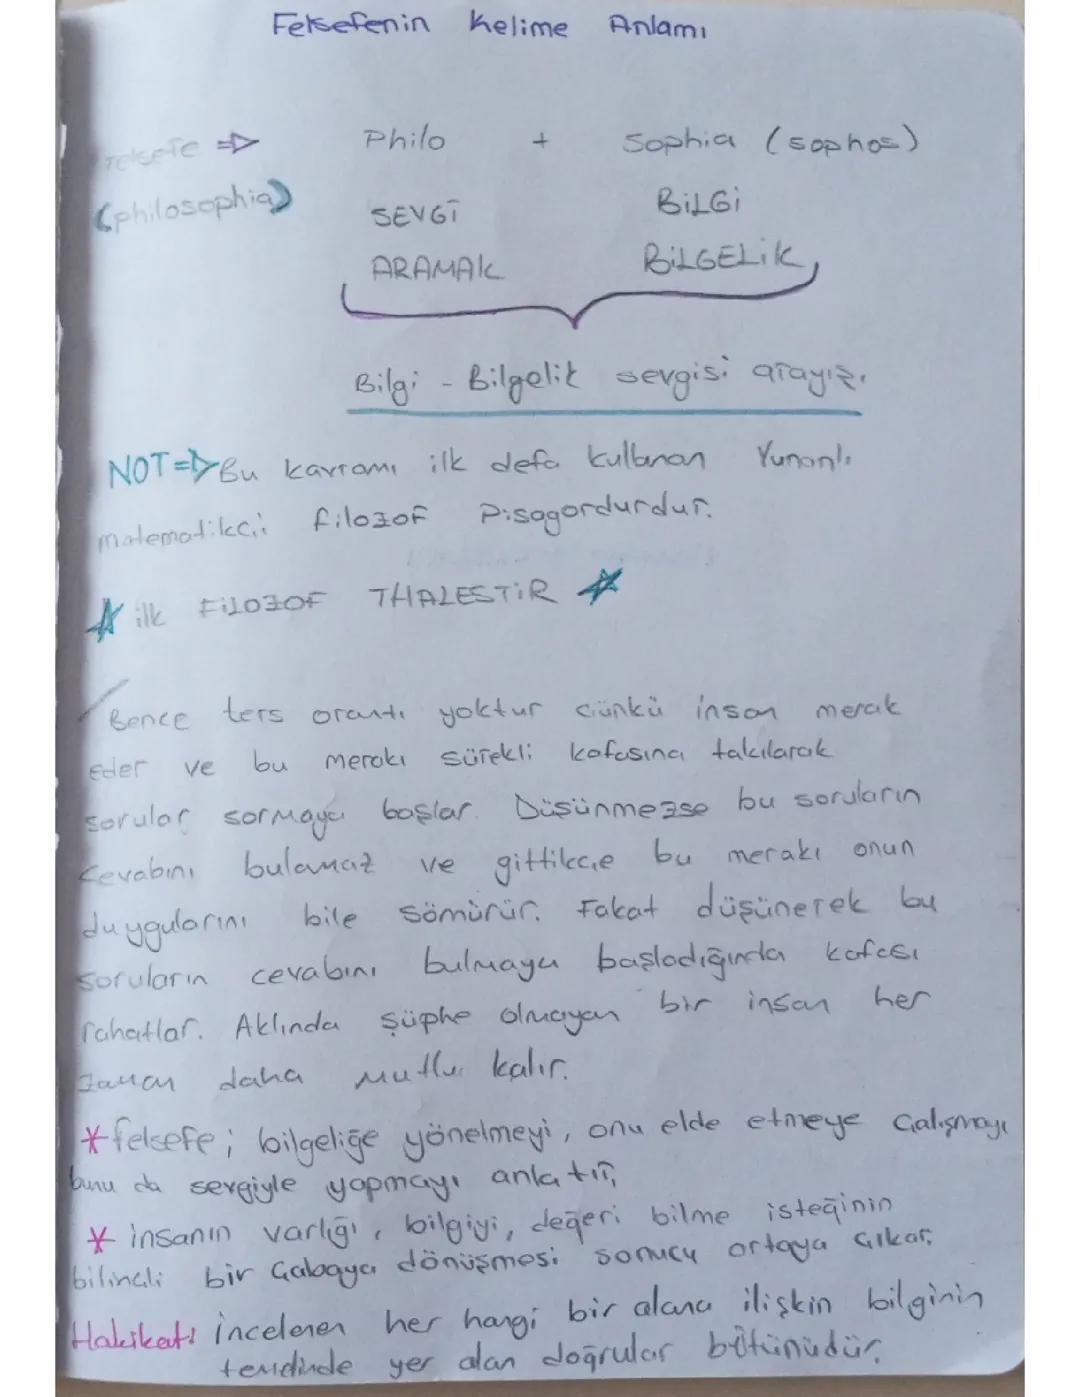 Felsefenin Kelime Anlamı
Felsefe ⇒ Philo + Sophia (sophos)
(philosophia)
SEVGİ BİLGİ
ARAMAK BİLGELİK
Bilgi - Bilgelik sevgisi arayışı
NOT⇒ Bu kavramı ilk defa kullanan Yunanlı
matematikçi filozof Pisagordurdur.
☆ ilk FİLOZOF THALESTİR ☆
Bence ters orantı yoktur çünkü insan merak
eder ve bu merakı sürekli kafasına takılarak
sorular sormaya başlar. Düşünmezse bu soruların
cevabını bulamaz ve gittikçe bu merakı onun
duygularını bile sömürür. Fakat düşünerek bu
soruların cevabını bulmaya başladığında kafası
rahatlar. Aklında şüphe olmayan bir insan her
zaman daha mutlu kalır.
* felsefe; bilgeliğe yönelmeyi, onu elde etmeye çalışmayı
bunu da sevgiyle yapmayı anlatır,
* insanın varlığı, bilgiyi, değeri bilme isteğinin
bilinçli bir çabaya dönüşmesi sonucu ortaya çıkar.
Hakikat: İncelenen her hangi bir alana ilişkin bilginin
temelinde yer alan doğrular bütünüdür.